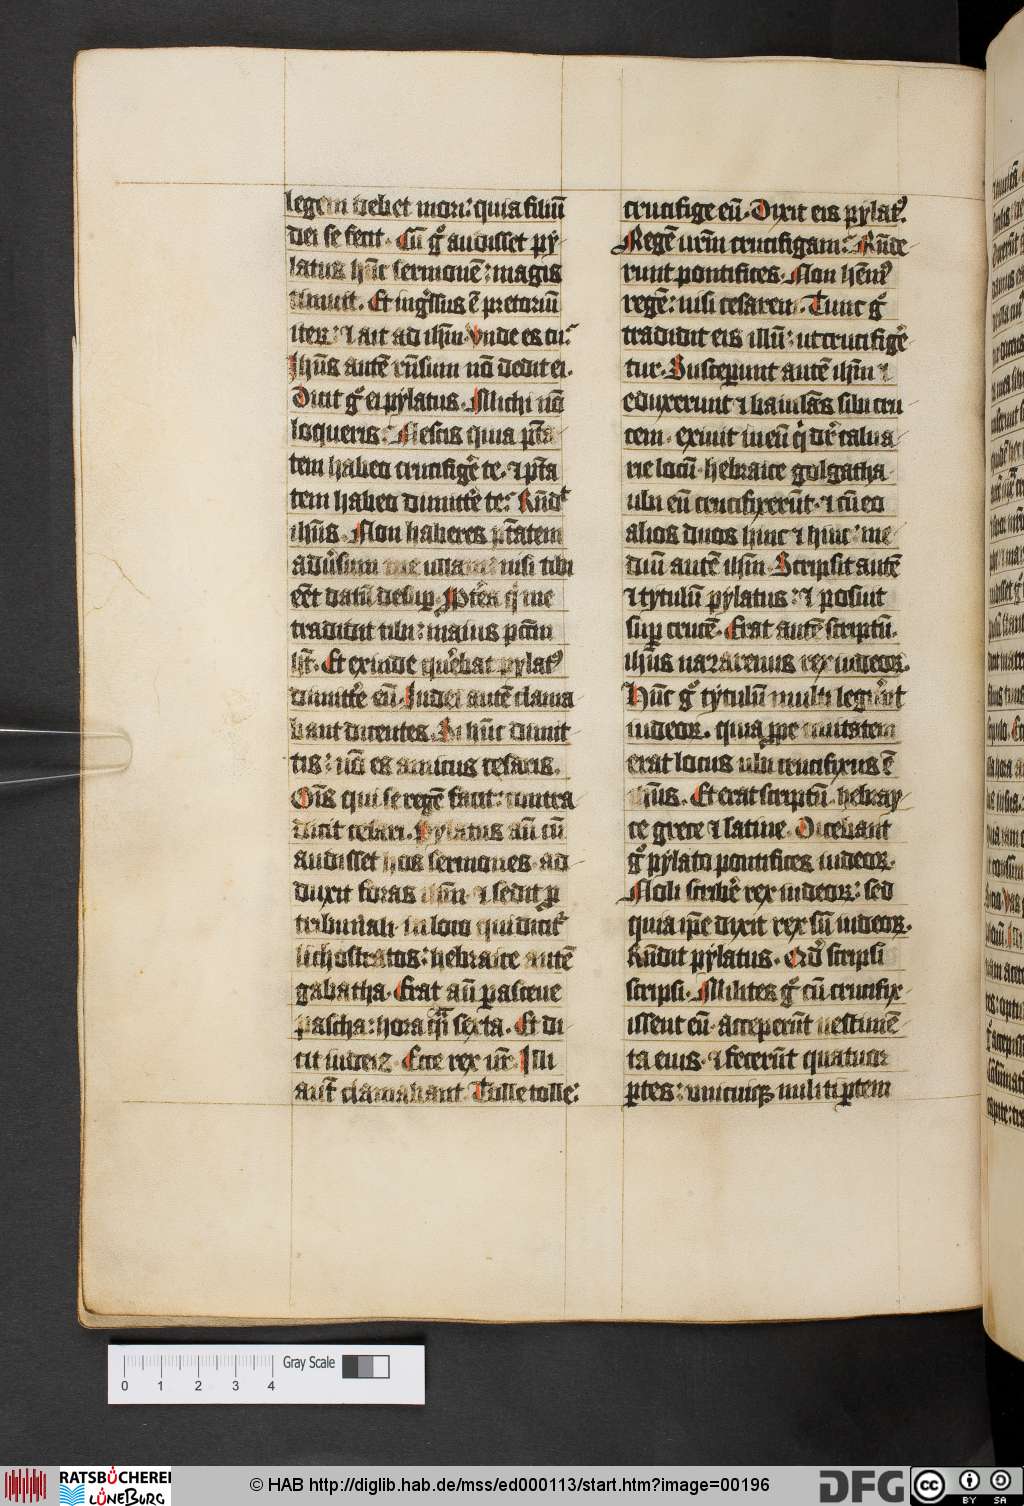 legem debet mori: quia filiū
dei se fecit. Cū gͦ audisset py-
latus hūc sermonē: magis
timuit. Et ingͥssus ē pretoriū
iteꝝ: ⁊ ait ad ihm̄. Vnde es tu:
Ihūs autē rn̄sum nō dedit ei.
Dicit gͦ ei pylatus. Michi nō
loqueris: Nescis quia pt̄a-
tem habeo crucifigē te. ⁊ pt̄a
tem habeo dimittē te: Rn̄dͭ
ihūs. Non haberes pt̄atem
adūsum me ullam: nisi tibi
eēt datū desuꝑ. Ꝓpteā qͥ me
tradidit tibi: maius pctm̄
hꝫ. Et exinde querebat pylatꝰ
dimittē eū. Iudei autē clama
bant dicentes. Si hūc dimit-
tis: nō es amicus cesaris.
Oīs qui se regē facit: contra
dicit cesari. Pylatus aū cū
audisset hos sermones. ad
duxit foras ihm̄. ⁊ sedit ꝓ
tribunali. in loco qui dicit᷑
lichostratos: hebraice autē
gabatha. Erat aū pasceue
pascha: hora qͣi sexta. Et di-
cit iudeis. Ecce rex ur̄. Illi
aut̄ clamabant. Tolle tolle:
crucifige eū. Dixit eis pylatꝰ.
Regē urm̄ crucifigam: Rn̄de-
runt pontifices. Non hēmꝰ
regē: nisi cesarem. Tunc gͦ
tradidit eis illū: ut crucifigē-
tur. Susceꝑunt autē ihm̄ ⁊
eduxerunt ⁊ baiulās sibi cru
cem. exiuit in eū qͥ dr̄ calua-
rie locū. hebraice golgatha.
ubi eū crucifixerūt. ⁊ cū eo
alios duos hinc ⁊ hinc: me-
diū autē ihm̄. Scripsit autē
⁊ tytulū pylatus: ⁊ posuit
suꝑ crucē. Erat autē scriptū.
ihūs nazarenus rex iudeoꝝ.
Hūc gͦ tytulū multi legeͬūt
iudeoꝝ. quia ꝓpe ciuitatem
erat locus ubi crucifixus ē
ihūs. Et erat scriptū. hebray-
ce grece ⁊ latine. Dicebant
gͦ pylato pontifices iudeoꝝ.
Noli scribē rex iudeoꝝ: sed
quia ip̄e dixit rex sū iudeoꝝ.
Rn̄dit pylatus. Qd̄ scripsi
scripsi. Milites gͦ cū crucifix-
issent eū. acceperūt uestimē-
ta eius. ⁊ fecerūt quatuor
ꝑtes: unicuiqꝫ militi ꝑtem
Gray Scale
0 1 2 3 4
RATSBÜCHEREI
LÜNEBURG
© HAB http://diglib.hab.de/mss/ed000113/start.htm?image=00196
DFG
cc BY SA